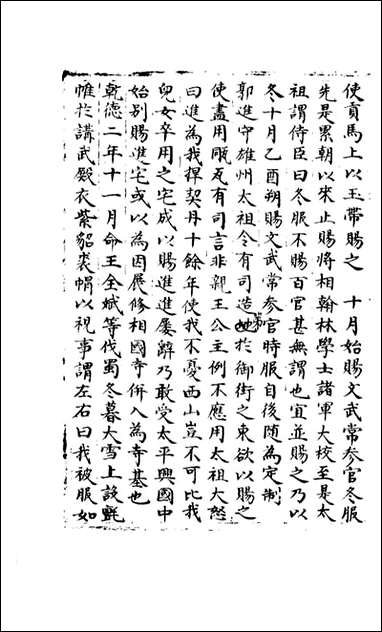 使貢馬上以玉帶賜之　十月始賜文武常參官冬服
先是累朝以來止賜將相翰林學士諸軍大校至是太
祖謂侍臣曰冬服不賜百官甚無謂也宜並賜之乃以
冬十月乙酉朔賜文武常參官時服自後随為定制
郭進守雄州太祖令有司造第於御街之東欲以賜之
使盡用㼧瓦有司言非親王公主例不應用太祖大怒
曰進為我捍契丹十餘年使我不憂西山豈不可比我
兒女卒用之宅成以賜進進屢辭乃敢受太平興國中
始别賜進宅或以為因展修相國寺併入為寺基也
乾德二年十一月命王全斌等伐蜀冬暮大雪上設氊
帷於講武殿衣紫貂裘帽以視事謂左右曰我被服如